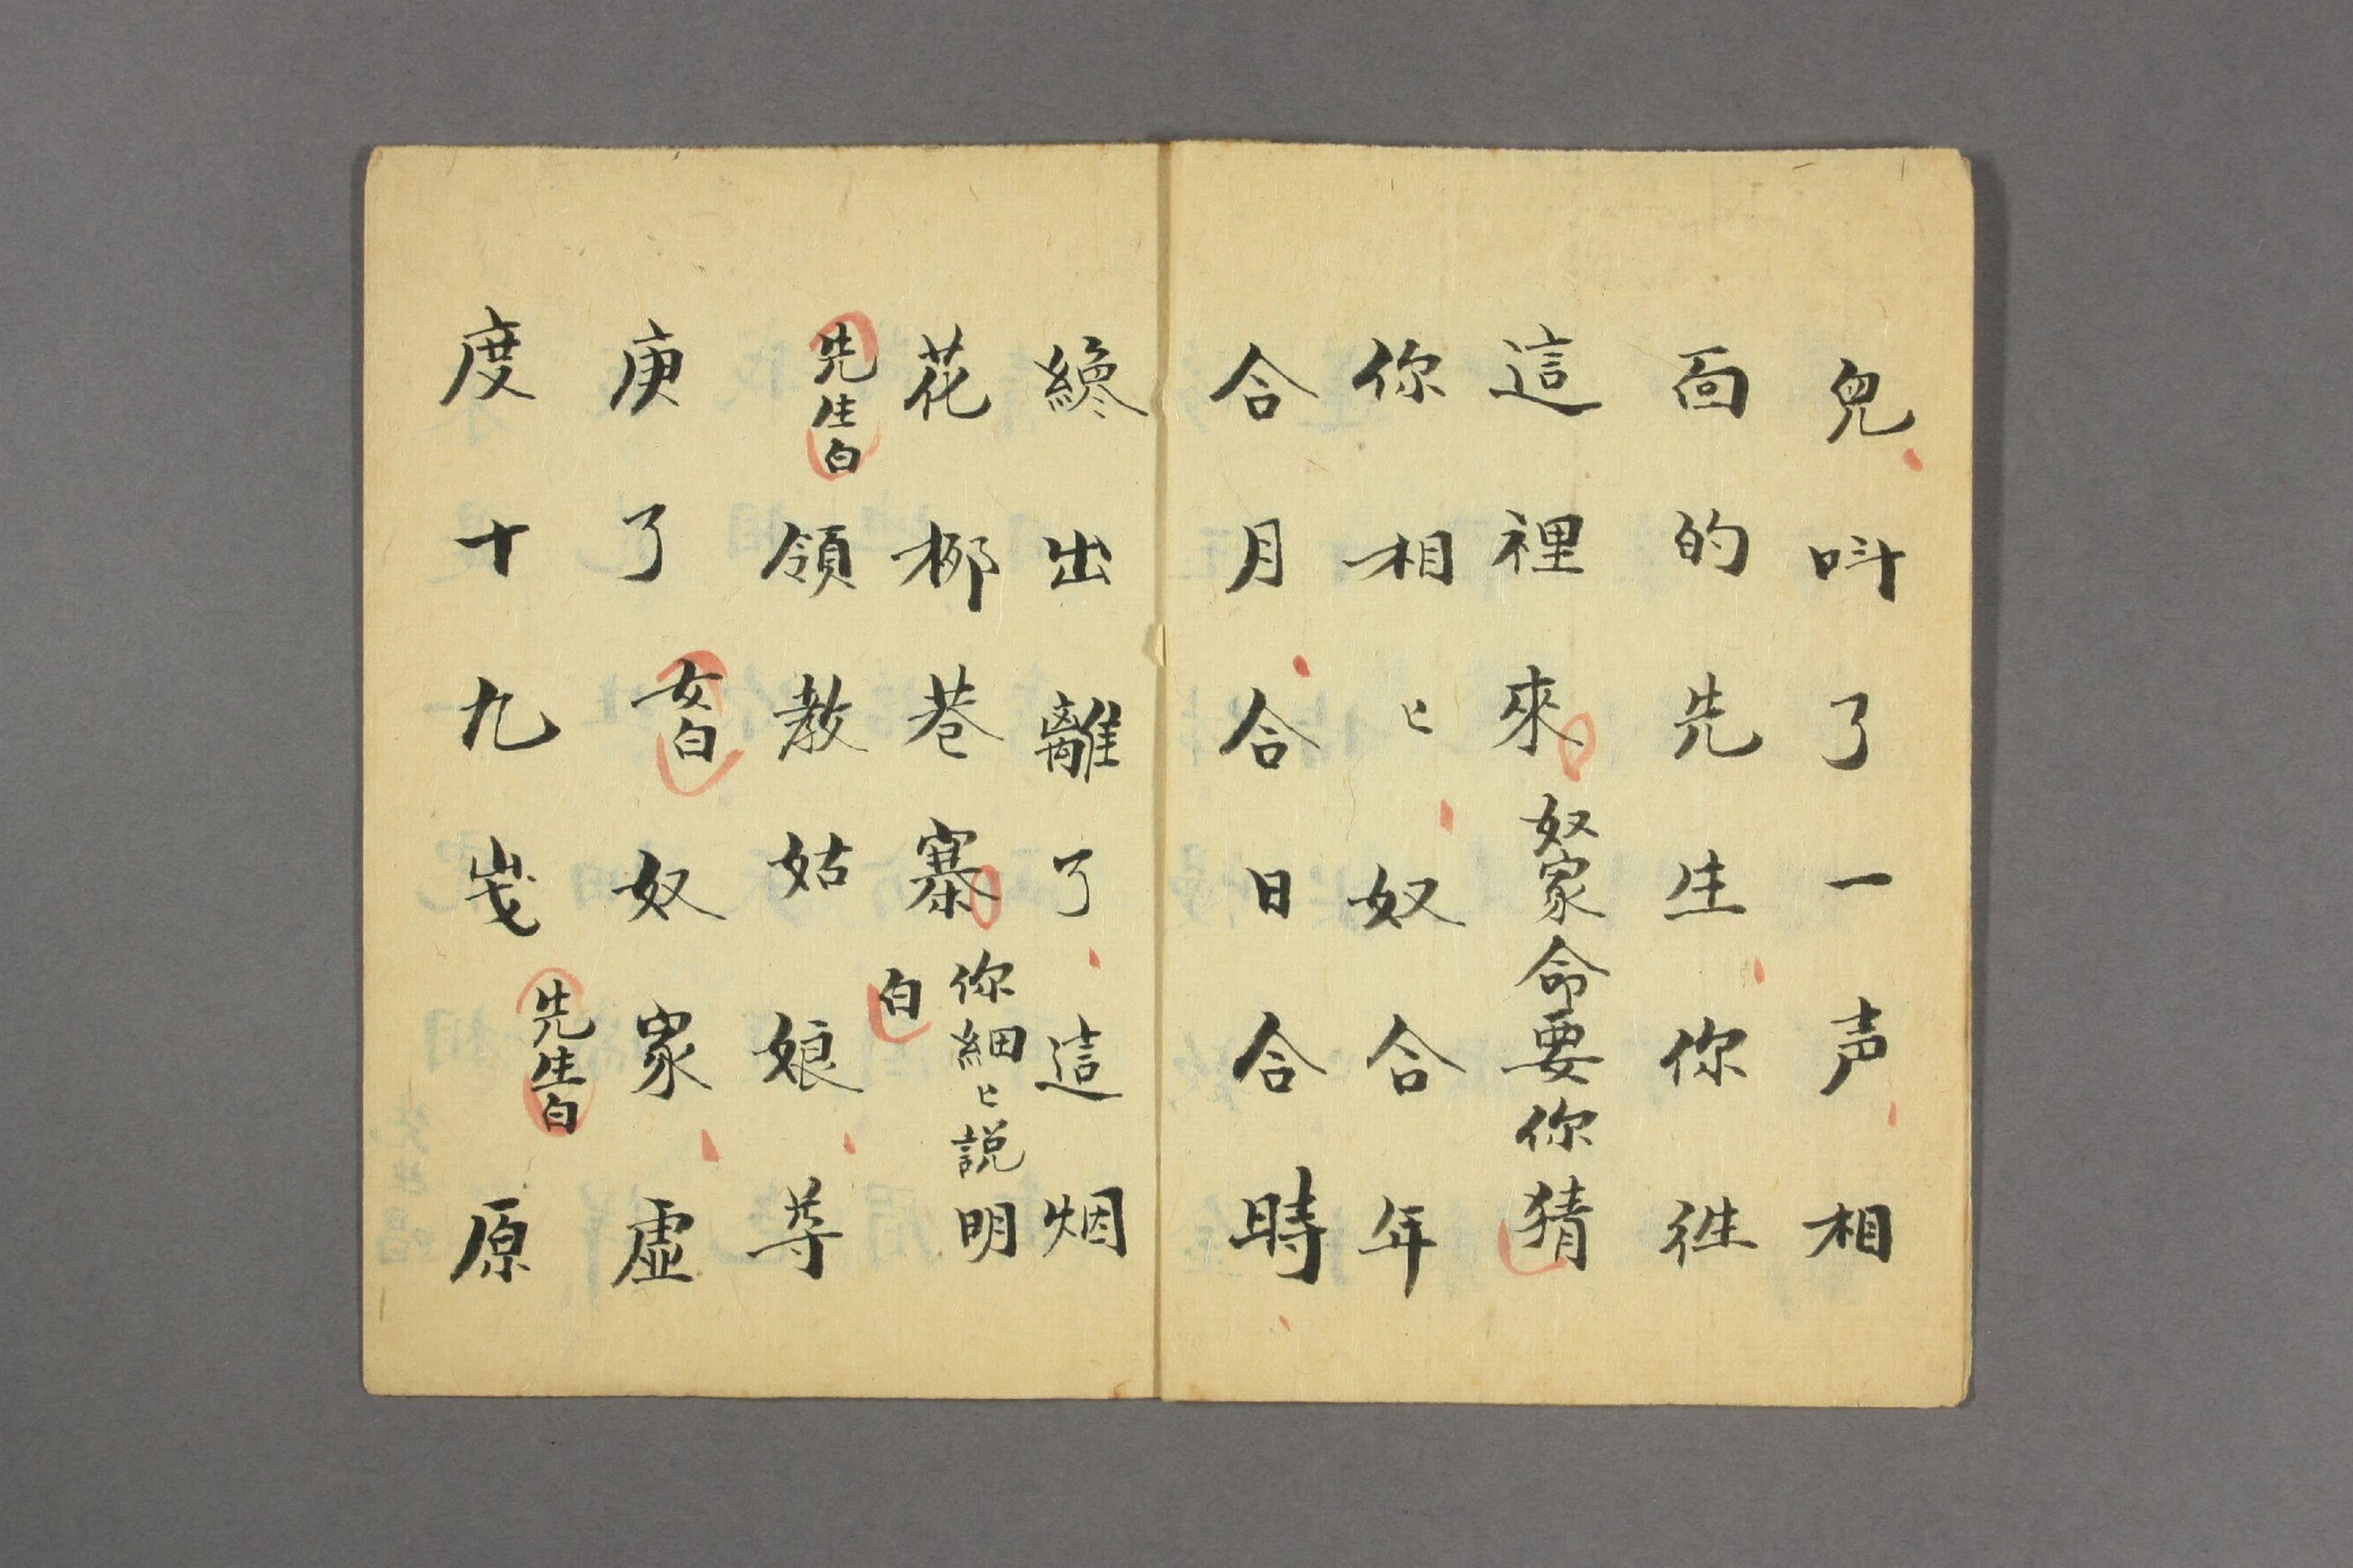 兒呌了一声相
面的先生你徃
這裡來奴家命要你猜
你相〻奴合年
合月合日合時
纔出離了這烟
花柳巷寨你細〻説明
白
先生白領教姑娘尊
庚了女白奴家虛
度十九嵗先生白原